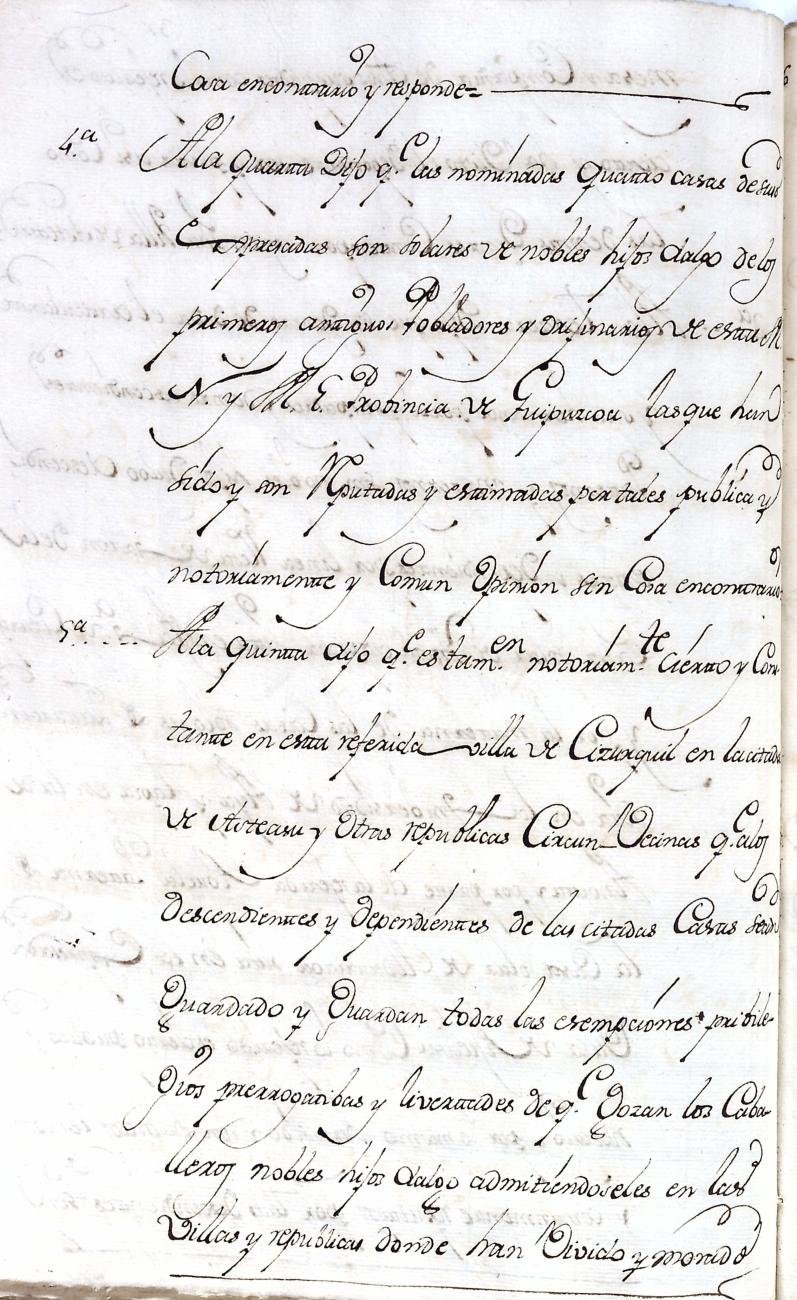 Cosa encontrario y responde=
4.a Ala quarta Dijo q.e las nominadas quatro casas desuso
Expresadas son solares de nobles hijos dalgo de los
primeros antiguos Pobladores y orijinarios de esta M.
N. y M. L. Probincia de Guipuzcoa las que han
sido y son Reputadas y estimadas por tales publica y
notoriamente y Comun opinion sin Cosa encontrario
5.a Ala quinta dijo q.e es tam.en notoriam.te Cierto y Cons-
tante en esta referida villa de Cizurquil en la citada
de Asteasu y Otras republicas Circun Vecinas q.e alos
descendientes y dependientes de las citadas Casas sean
Guardado y Guardan todas las esempciónes pribile-
Gios prerrogatibas y livertades de q.e Gozan los Caba-
lleros nobles hijos dalgo admitiéndoseles en las
Villas y republicas donde han Vivido y morado